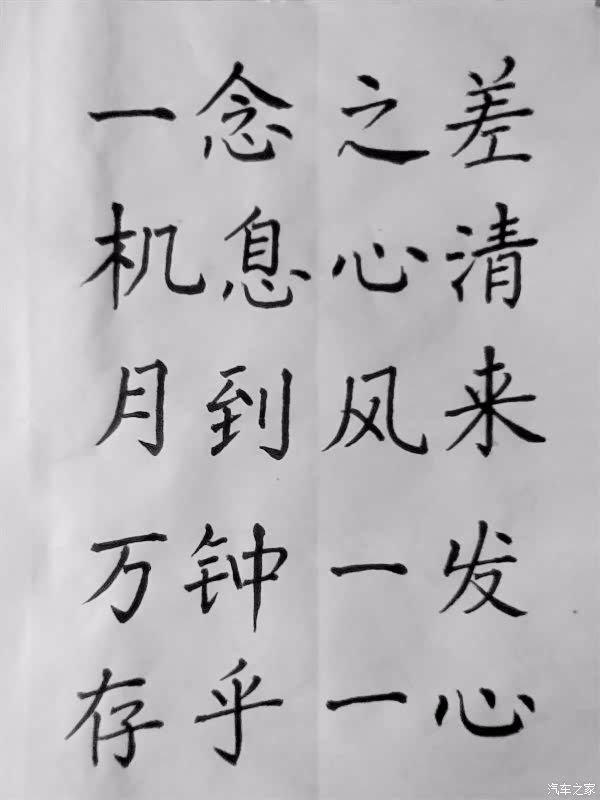 一念之差
机息心清
月到风来
万钟一发
存乎一心
汽车之家